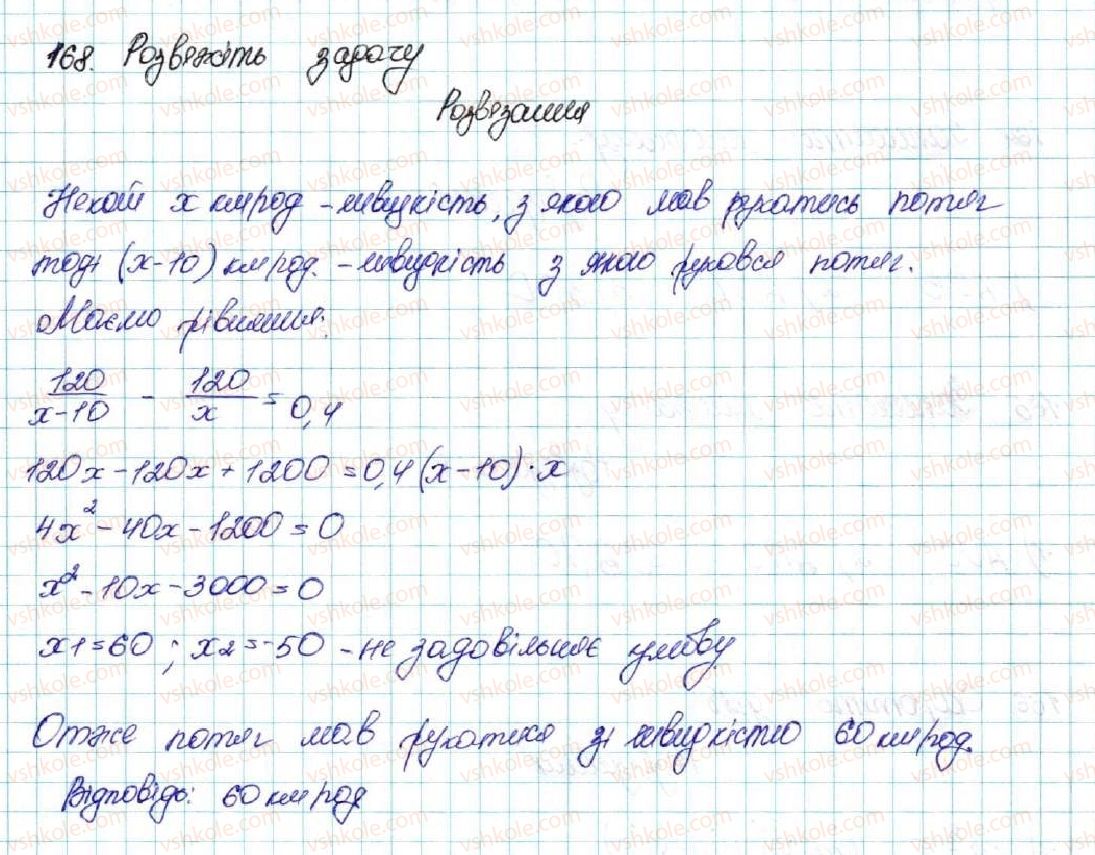 168. Розвяжіть задачу
Розвязання
Нехай x км/год - швидкість, з якою мав рухатись потяг
тоді (x-10) км/год. - швидкість з якою рухався потяг.
Маємо рівняння:
120/(x-10) - 120/x = 0,4
120x - 120x + 1200 = 0,4(x-10)·x
4x² - 40x - 1200 = 0
x² - 10x - 3000 = 0
x1 = 60 ; x2 = -50 - не задовільняє умову
Отже потяг мав рухатися зі швидкістю 60 км/год.
Відповідь: 60 км/год